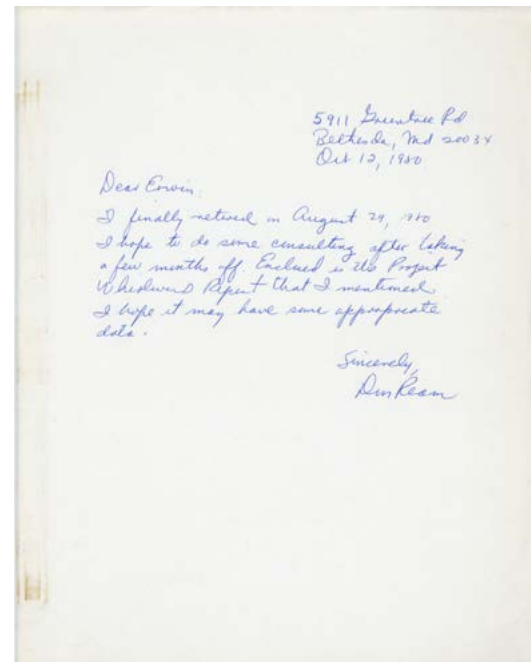 5911 Greentree Rd
Bethesda, Md 20034
Oct 12, 1980
Dear Erwin:
I finally retired on August 29, 1980
I hope to do some consulting after taking
a few months off. Enclosed is the Project
Report that I mentioned.
I hope it may have some appropriate
data.
Sincerely,
Ream